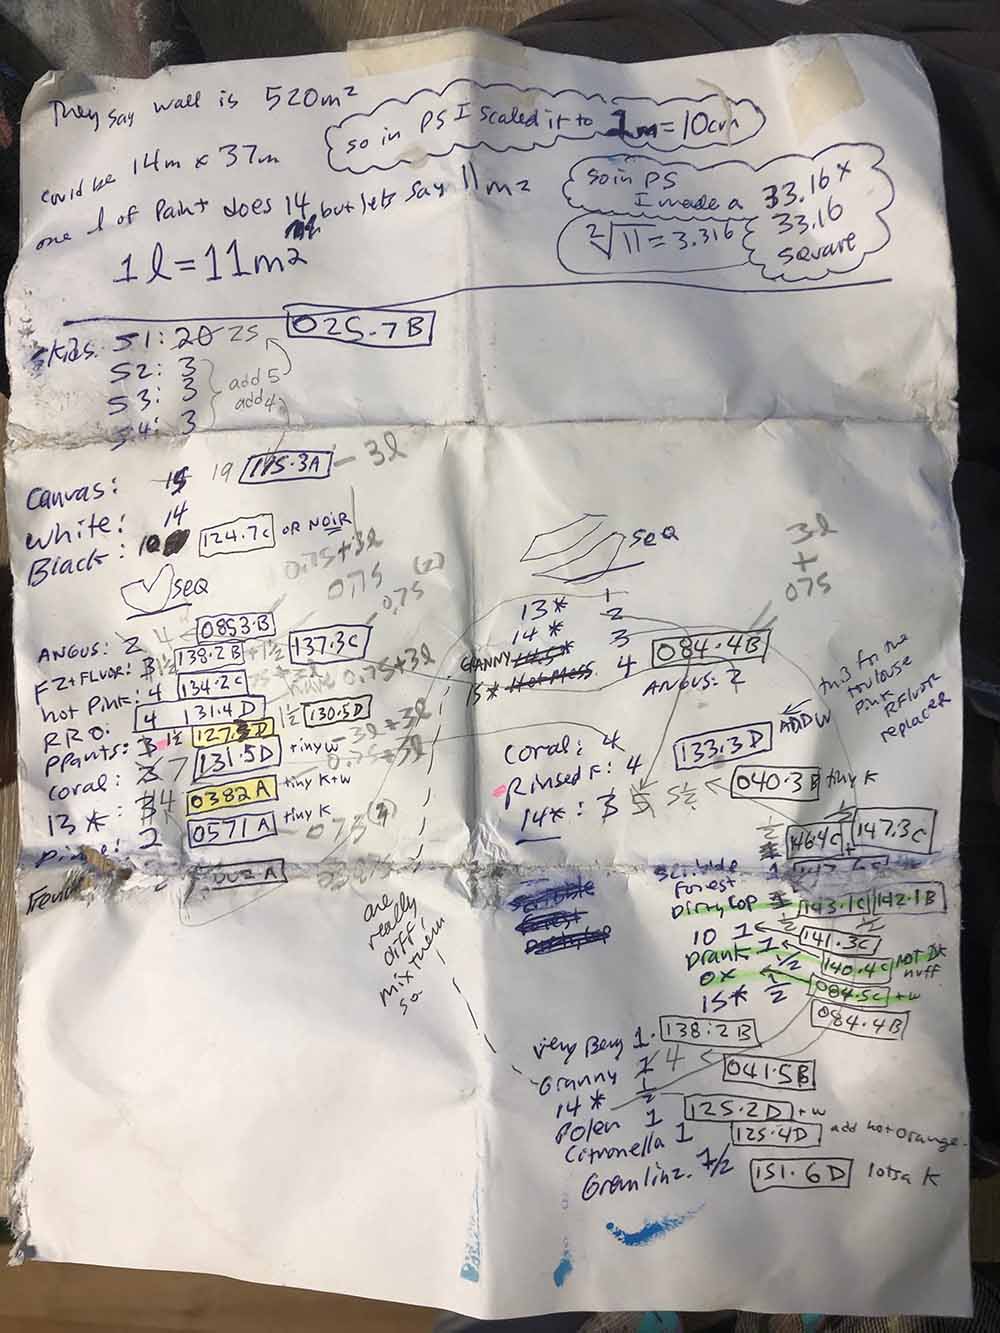 They say wall is 520m²
so in PS I scaled it to 1m=10cm
could be 14m x 37m
one l of Paint does 14 but lets say 11m²
so in PS
I made a 33.16 x
33.16
square
²√11=3.316
1l=11m²
Skids. S1: 20 25 025.7B
S2: 3
S3: 3
S4: 3
add 5
add 4
Canvas: 15 19 115.3A - 3l
White: 14
Black: 10 124.7C OR NOIR
SEQ
0.75+3l
075 (2)
0,75
ANGUS: 2 4 0853.B
FZ+FLUOR: 3 1½ 138.2B +1½ 137.3C
hot Pink: 4 134.2C have 0.75+3l
RRO: 4 131.4D 1½ 130.5D
PPants: 3 1½ 127.3D
Coral: 3 7 131.5D tiny w
13*: 3 4 0382A tiny K+w
2 0571A tiny K
002A
SEQ
3l
+
075
13* 1
14* 2
GRANNY 14.5* 3
15* Hot Mess 4 084.4B
ANGUS: 2
this for the
toulouse
pink
RFluor
replacer
Coral: 4
Rinsed K: 4 133.3D ADD W
14*: 3 5 5½ 040.3B tiny K
½ 146.4C 147.3C
scribble 1
forest
Dirty cop 143.1C 142.1B
10 1 ½ 141.3C
Drank 1 140.4C NOT DK nuff
OX ½ 084.5C +w
15* ½ 084.4B
scribble
forest
dirty cop
are
really
diff
mix them
so
Very Bery 1. 138.2B
Granny 1 4 041.5B
14* ½
Polen 1 125.2D +w
Citronella 1 125.4D add hot orange.
Gremlinz. 1/2 151.6D lotsa K